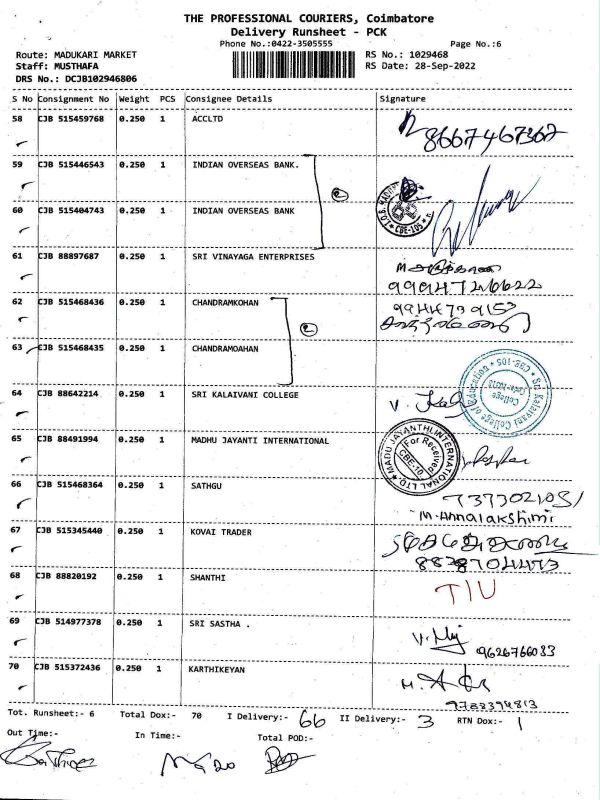 THE PROFESSIONAL COURIERS, Coimbatore
Delivery Runsheet - PCK
Phone No.:0422-3505555 Page No.:6
Route: MADUKARI MARKET RS No.: 1029468
Staff: MUSTHAFA RS Date: 28-Sep-2022
DRS No.: DCJB102946806
S No Consignment No Weight PCS Consignee Details Signature
58 CJB 515459768 0.250 1 ACCLTD
8667467367
59 CJB 515446543 0.250 1 INDIAN OVERSEAS BANK.
2
60 CJB 515404743 0.250 1 INDIAN OVERSEAS BANK
CBE-105
61 CJB 88897687 0.250 1 SRI VINAYAGA ENTERPRISES
62 CJB 515468436 0.250 1 CHANDRAMKOHAN
9944739153
2
63 CJB 515468435 0.250 1 CHANDRAMOAHAN
64 CJB 88642214 0.250 1 SRI KALAIVANI COLLEGE
Sri Kalaivani College of Education * CBE-105 *
65 CJB 88491994 0.250 1 MADHU JAYANTI INTERNATIONAL
MADU JAYANTHI INTERNATIONAL LTD.
For Received
CBE-10
66 CJB 515468364 0.250 1 SATHGU
M.Annalakshimi
67 CJB 515345440 0.250 1 KOVAI TRADER
68 CJB 88820192 0.250 1 SHANTHI
TIU
69 CJB 514977378 0.250 1 SRI SASTHA .
9626766033
70 CJB 515372436 0.250 1 KARTHIKEYAN
Tot. Runsheet:- 6 Total Dox:- 70 I Delivery:- 66 II Delivery:- 3 RTN Dox:- 1
Out Time:- In Time:- Total POD:-